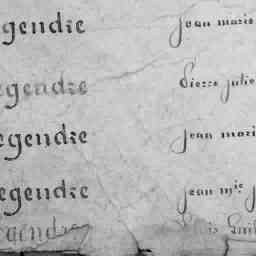 gendre jean marie
egendre Pierre julie
egendre jean mari
egendre jean mie j
egendre Louis Emil